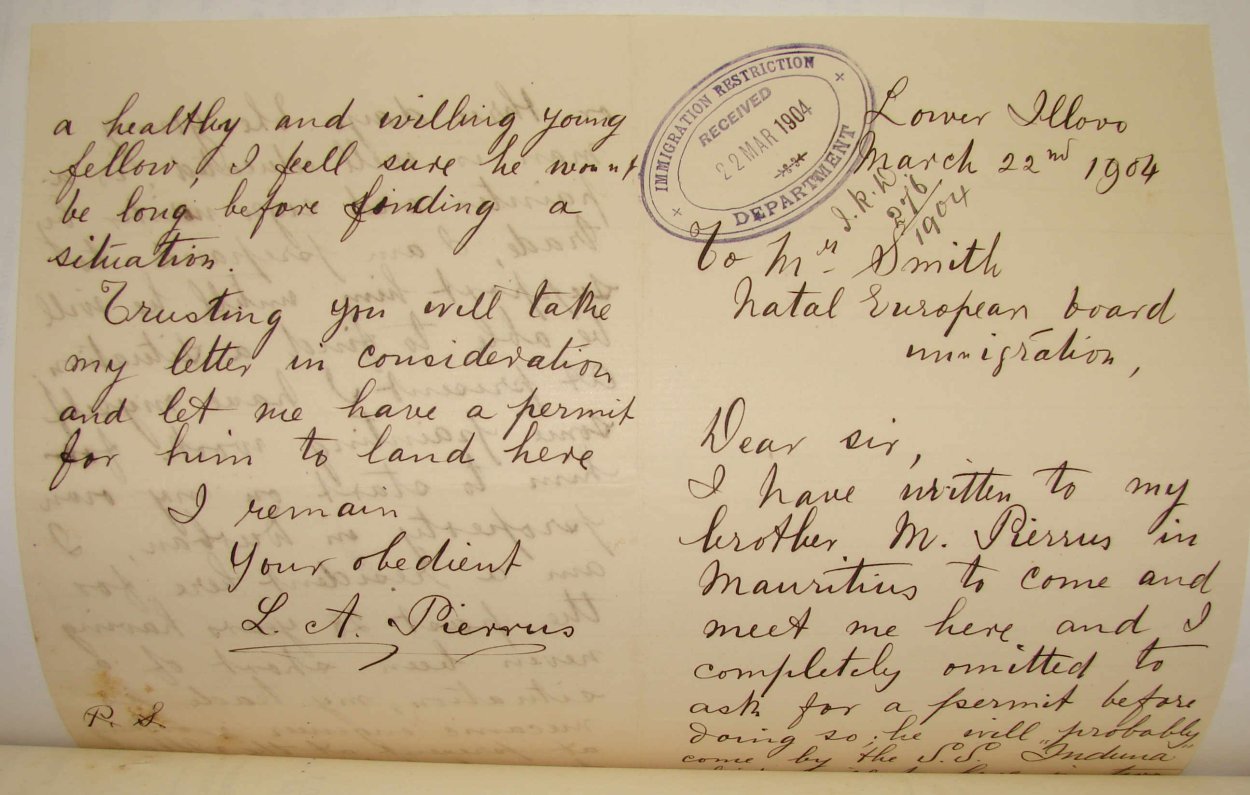 Lower Illovo
March 22nd 1904
IMMIGRATION RESTRICTION
RECEIVED
22 MAR 1904
DEPARTMENT
276
1904
To Mr Smith
Natal European board
immigration,
Dear sir,
I have written to my
brother M. Pierrus in
Mauritius to come and
meet me here and I
completely omitted to
ask for a permit before
doing so; he will probably
come by the S.S. "Induna"
a healthy and willing young
fellow, I fell sure he wount
be long before finding a
situation.
Trusting you will take
my letter in consideration
and let me have a permit
for him to land here
I remain
Your obedient
L. A. Pierrus
P. S.